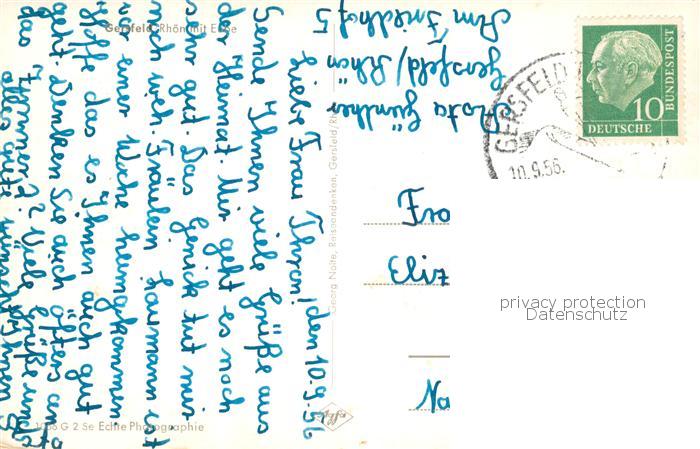 Gersfeld Rhön mit Eube
den 10.9.56
Liebe Frau Thron!
Sende Ihnen viele Grüße aus
der Heimat. Mir geht es noch
sehr gut. Das Genick tut mir
noch weh. Fräulein Haumann ist
vor einer Woche heimgekommen
Hoffe das es Ihnen auch gut
geht. Denken Sie auch öfters an
das Zimmer 2? Viele Grüße und
alles gute wünscht Ihnen
Rosta Günther
Gersfeld/Rhön
Am Friedhof 5
Georg Nolte, Reiseandenken, Gersfeld/Rhön
G 2 Se Echte Photographie
DEUTSCHE BUNDESPOST
10
GERSFELD
10.9.56.
Fra
Eliz
Na
privacy protection
Datenschutz